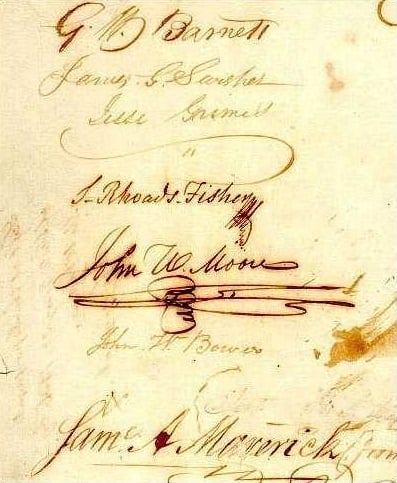 G. W. Barnett
James G. Swisher
Jesse Grimes
S. Rhoads Fisher
John W. Moore
John W Bower
Saml A Maverick (from